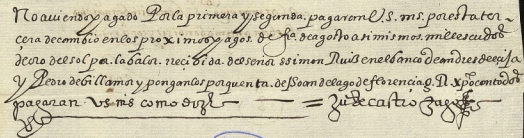 No aviendo pagado Por la primera y segunda. pagaran V.s. ms. por esta ter-
çera de cambio en los proximos pagos. de fa. de agosto a si mismos. mill escudos
de oro del sol por la valor. Recibida. del señor ssimon Ruiz en el banco de andres de ecija
y Pedro de Villamor y pongan los por quenta. de Joan de lago de florencia q. R xpo con todos
pagaran Vs ms como dize